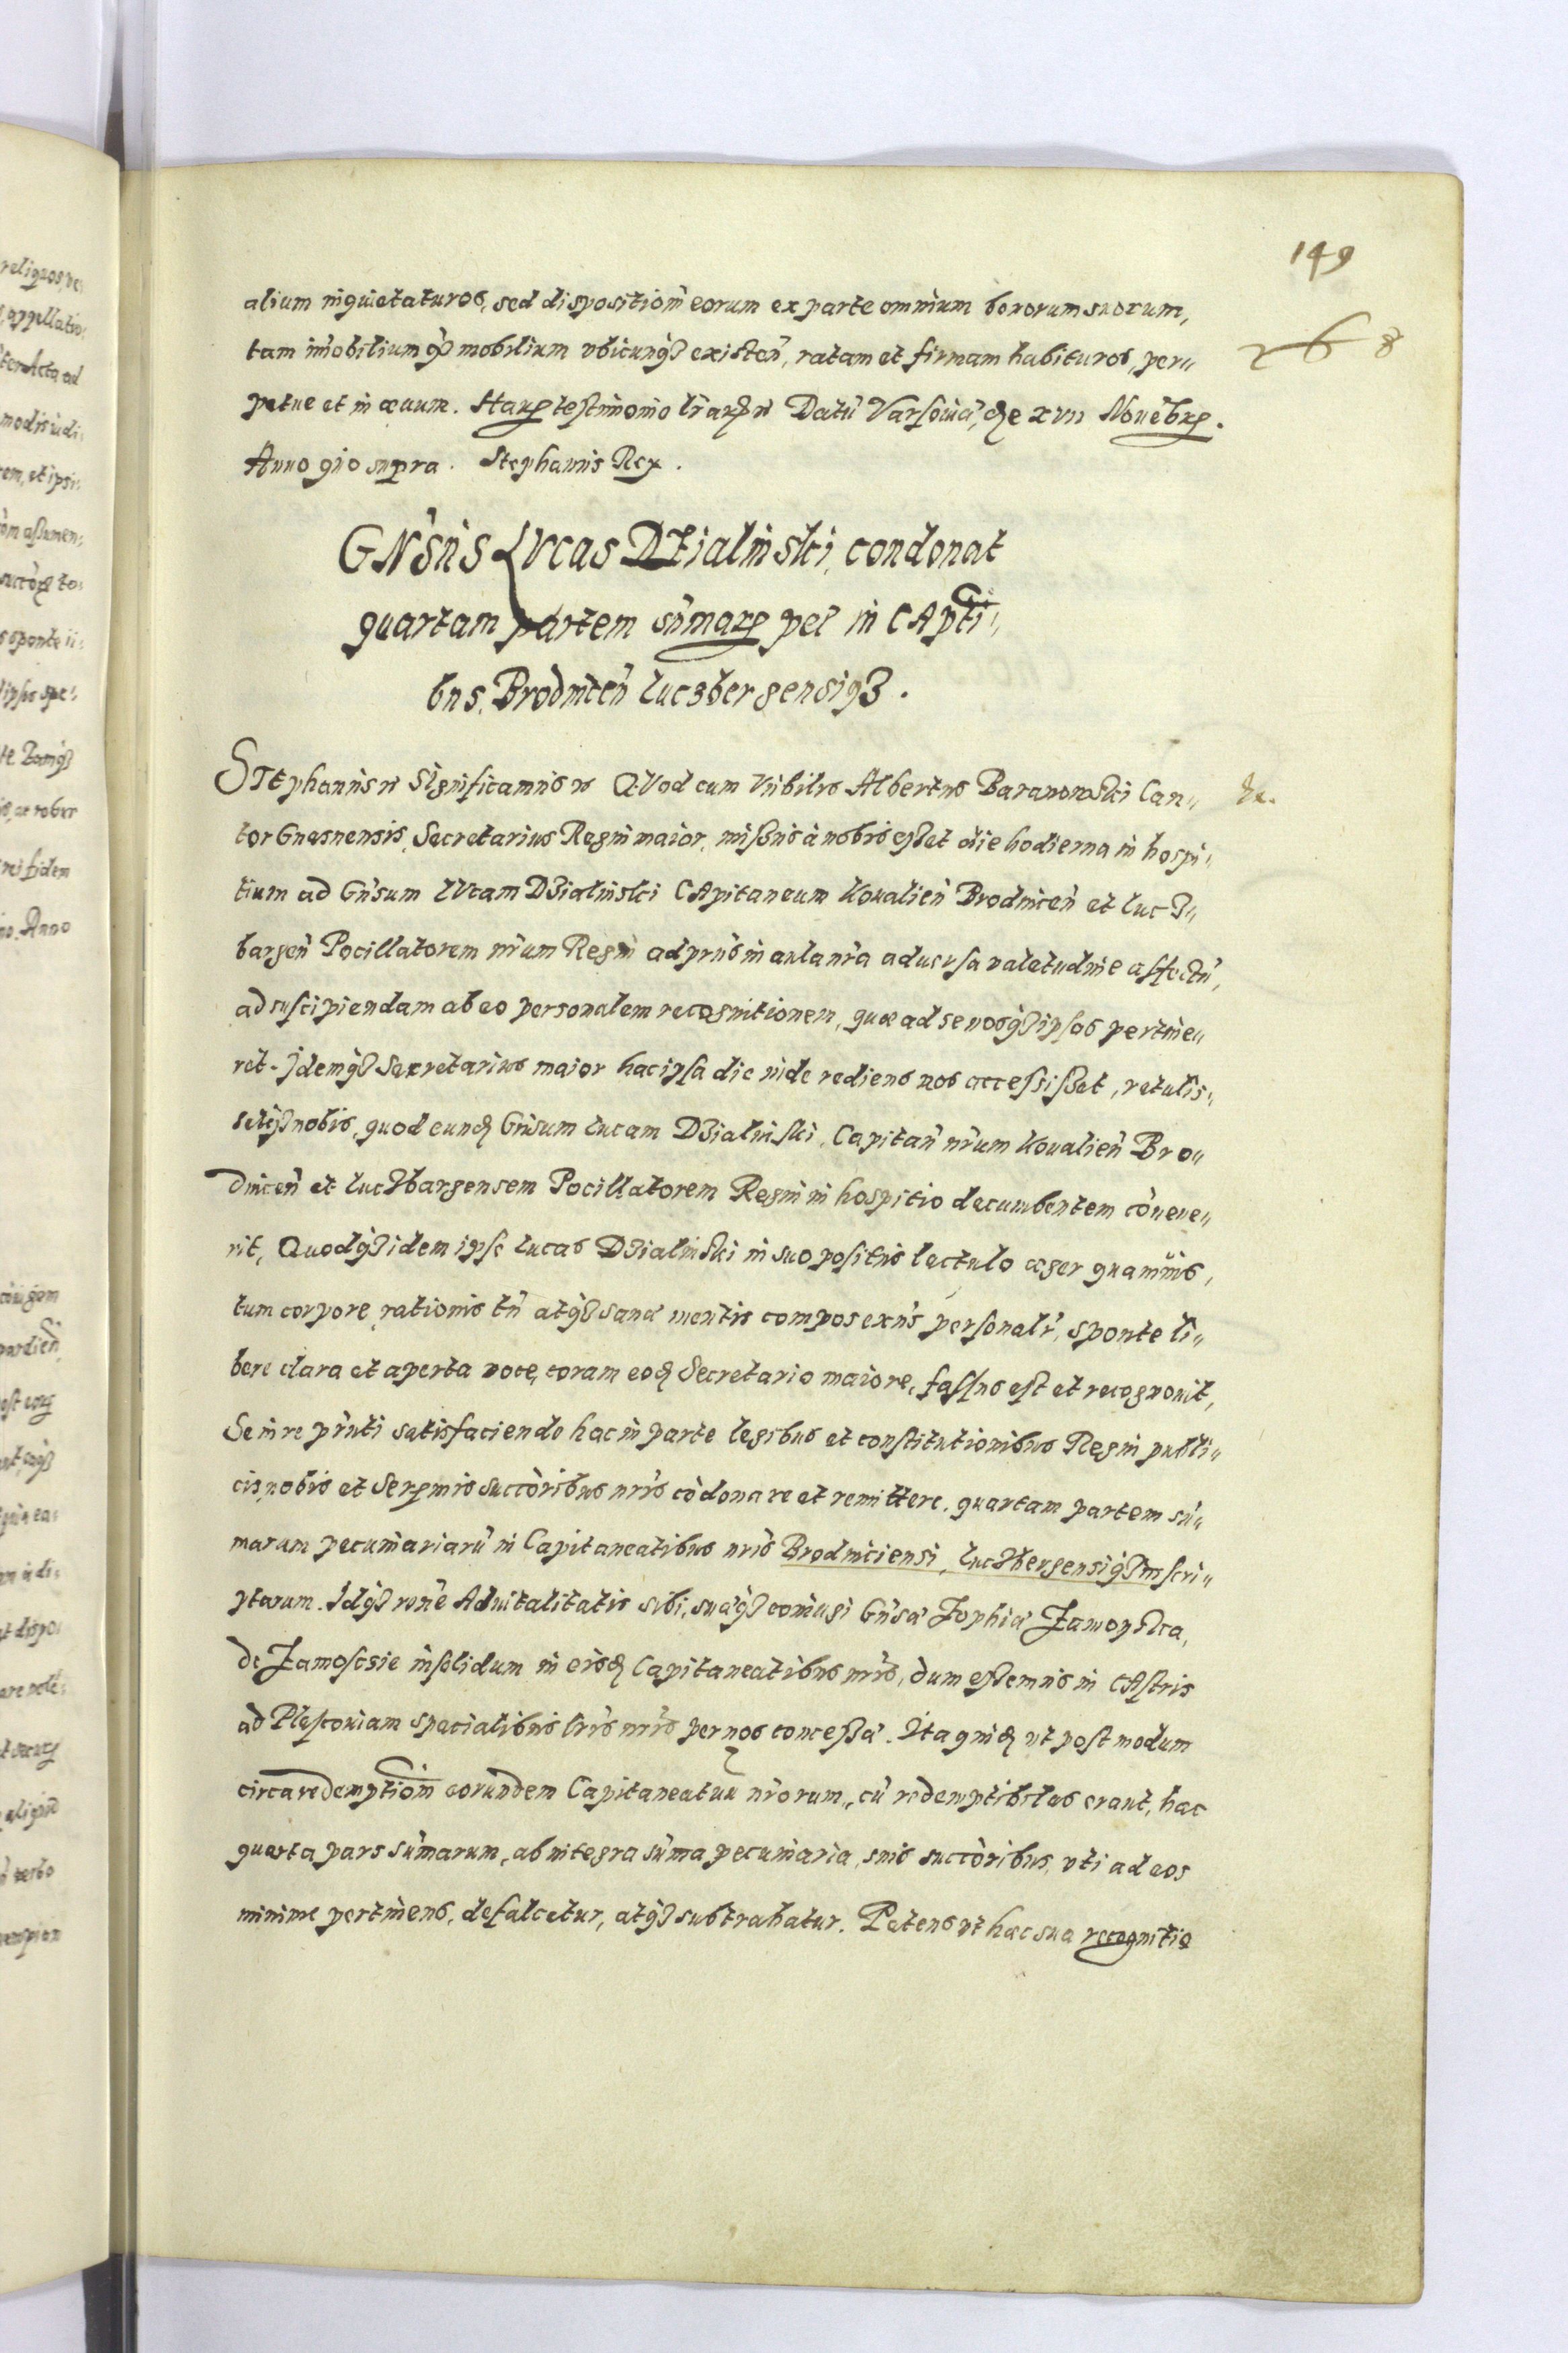 149
268
alium inquietaturos, sed dispositiom̃ eorum ex parte omnium bonorum suorum,
tam im̃obilium q̃ʒ mobilium vbicunqʒ existeñ, ratam et firmam habituros, per„
petue et in æuum. Harꝝ testimonio lr̃arꝝ Datũ Varsouiæ, die xvii Nouẽbrꝭ.
Anno quo supra. Stephanus Rex.
GN̄sus LVcas Dzialinski, condonat
quartam partem sum̃arꝝ pec̃ in CApti„
bus, Brodniceñ Luczbergensiqʒ.
STephanus Significamus QVod cum Nobilis Albertus Baranowski Can„
tor Gnesnensis, Secretarius Regni maior, missus à nobis esset die hodierna in hospi„
tium ad Gn̄sum LVcam Dzialinski CApitaneum Koualieñ Brodniceñ et Lucz„
bargeñ Pocillatorem nr̃um Regni ad pr̃ns in aula nr̃a aduersa valetudine affectũ,
ad suscipiendam ab eo personalem recognitionem, quæ ad se nosq̃ʒ ipsos pertine„
ret. Idemq̃ʒ Secretarius maior hac ipsa die inde rediens nos accessisset, retulis„
setqʒ nobis, quod eundꝫ Gn̄sum Lucam Dzialinski, Capitañ nr̃um Koualieñ Bro„
dniceñ et Luczbargensem Pocillatorem Regni in hospitio decumbentem cõuene„
rit, Quodq̃ʒ idem ipse Lucas Dzialinski in suo positus lectulo æger quamuis,
tum corpore, rationis tñ atq̃ʒ sanæ mentis compos exñs personalr̃, sponte li„
bere clara et aperta voce, coram eodꝫ Secretario maiore, fassus est et recognouit,
Se in re pr̃nti satisfaciendo hac in parte legibus et constitutionibus Regni publi„
cis, nobis et Serꝭmis succõribus nr̃is cõdonare et remittere, quartam partem sũ„
marum pecuniariarũ in Capitaneatibus nr̃is Brodniciensi, Luczbergensiq̃ʒ inscri„
ptarum. Idq̃ʒ rõne Aduitalitatis sibi, suæq̃ʒ coniugi Gn̄sæ Zophiæ Zamoyska,
de Zamoscsie in solidum in eisdꝫ Capitaneatibus nr̃is, dum essemus in CAstris
ad Plescouiam specialibus lr̃is nr̃is per nos concessæ. Ita quidꝫ vt post modum
circa redemptiom̃ eorundem Capitaneatuu nr̃orum, cũ redemptibiles erunt, hæc
quarta pars sum̃arum, ab integra sum̃a pecuniaria, suis succõribus, vti ad eos
minime pertinens, defalcetur, atq̃ʒ subtrahatur. Petens vt hæc sua recognitio